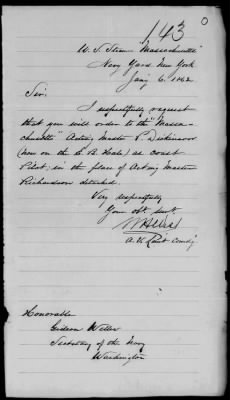 143
U. S. Steamer Massachusetts
Navy Yard New York
Jany 6. 1862
Sir;
I respectfully request
that you will order to the "Massa-
chusetts" Acting Master P. Dickinson
(now on the E. B. Hale) as coast
Pilot; in the place of Acting Master
Richardson detached.
Very respectfully
Your obt. Servt.
A. V. Lieut Comdg
Honorable
Gideon Welles
Secretary of the Navy
Washington